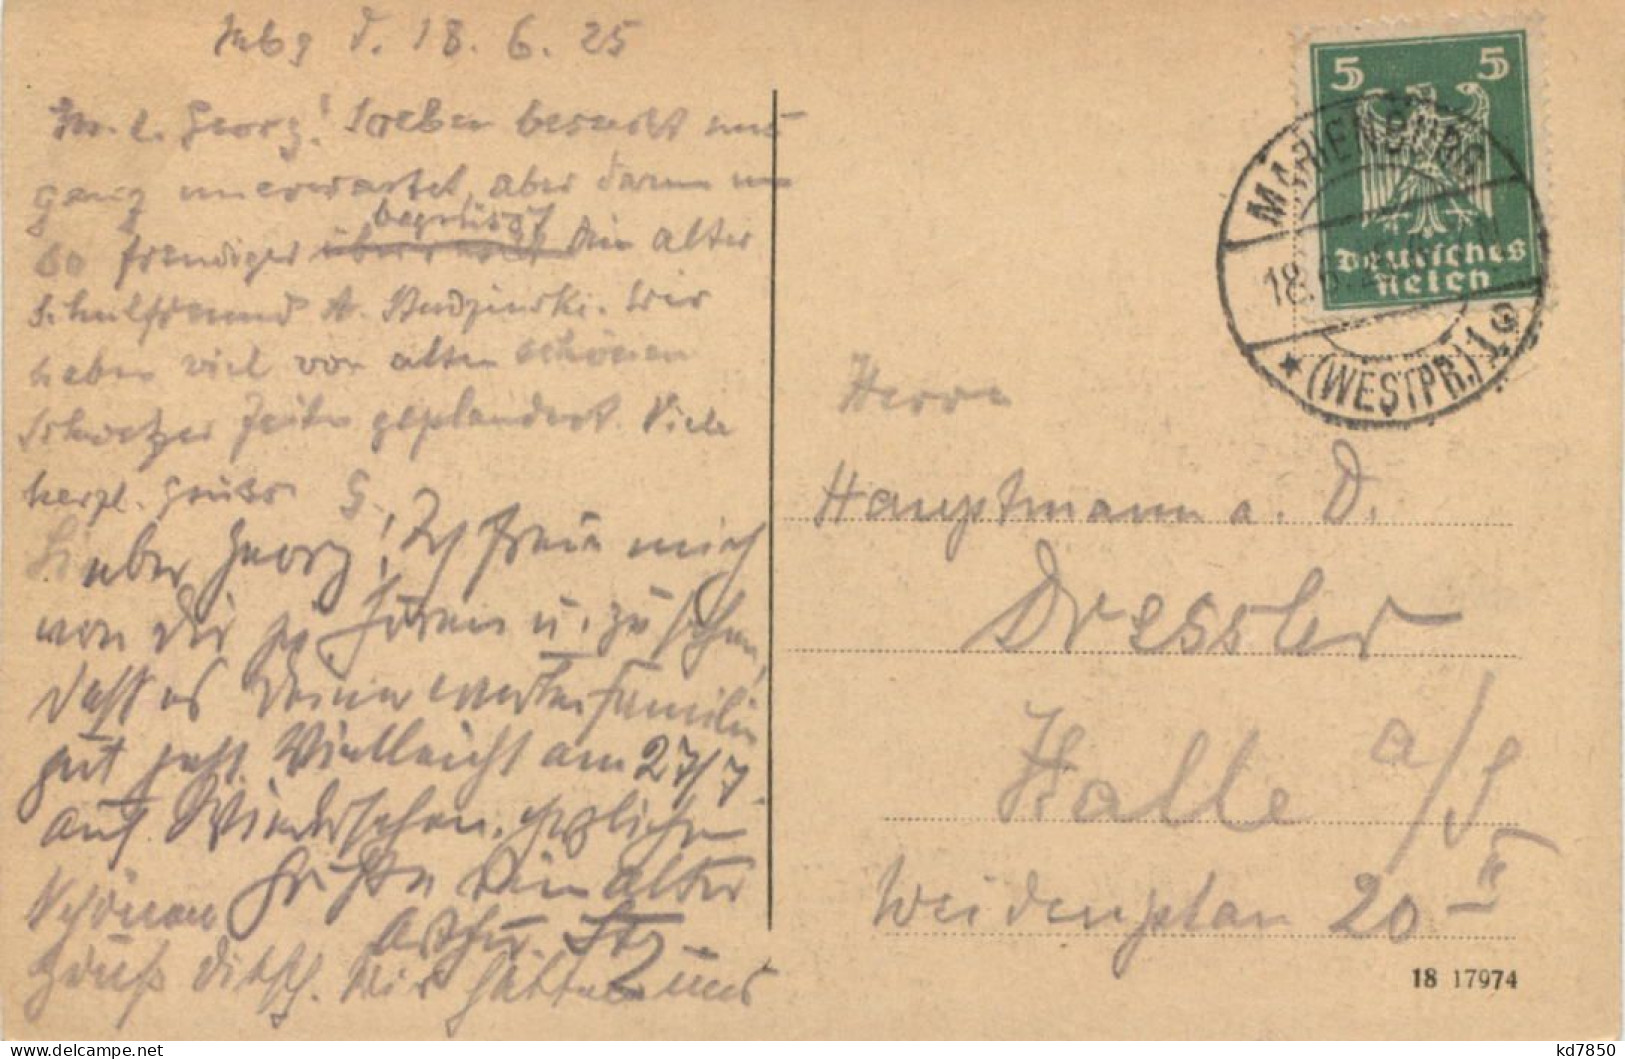 Mbg d. 18. 6. 25
M. l. Georg! Soeben besucht uns
ganz unerwartet, aber darum um
so freudiger begrüsst Dein alter
Schulfreund A. Rudzinski. Wir
haben viel von alten schönen
Schwetzer Zeiten geplaudert. Viele
herzl. Grüsse G.
Lieber Georg! Ich freue mich
von Dir zu hören u. zu sehen,
daß es Deiner werten Familie
gut geht. Vielleicht am 27/7.
auf Wiedersehen. Herzliche
Grüße Dein alter
Arthur.
Schönen
Gruß Wir hätten uns
5 5
Deutsches
Reich
MARIENBURG
18.6.25
* (WESTPR.) 1
Herrn
Hauptmann a. D.
Dressler
Halle a/S
Weidenplan 20 II
18 17974
kd7850